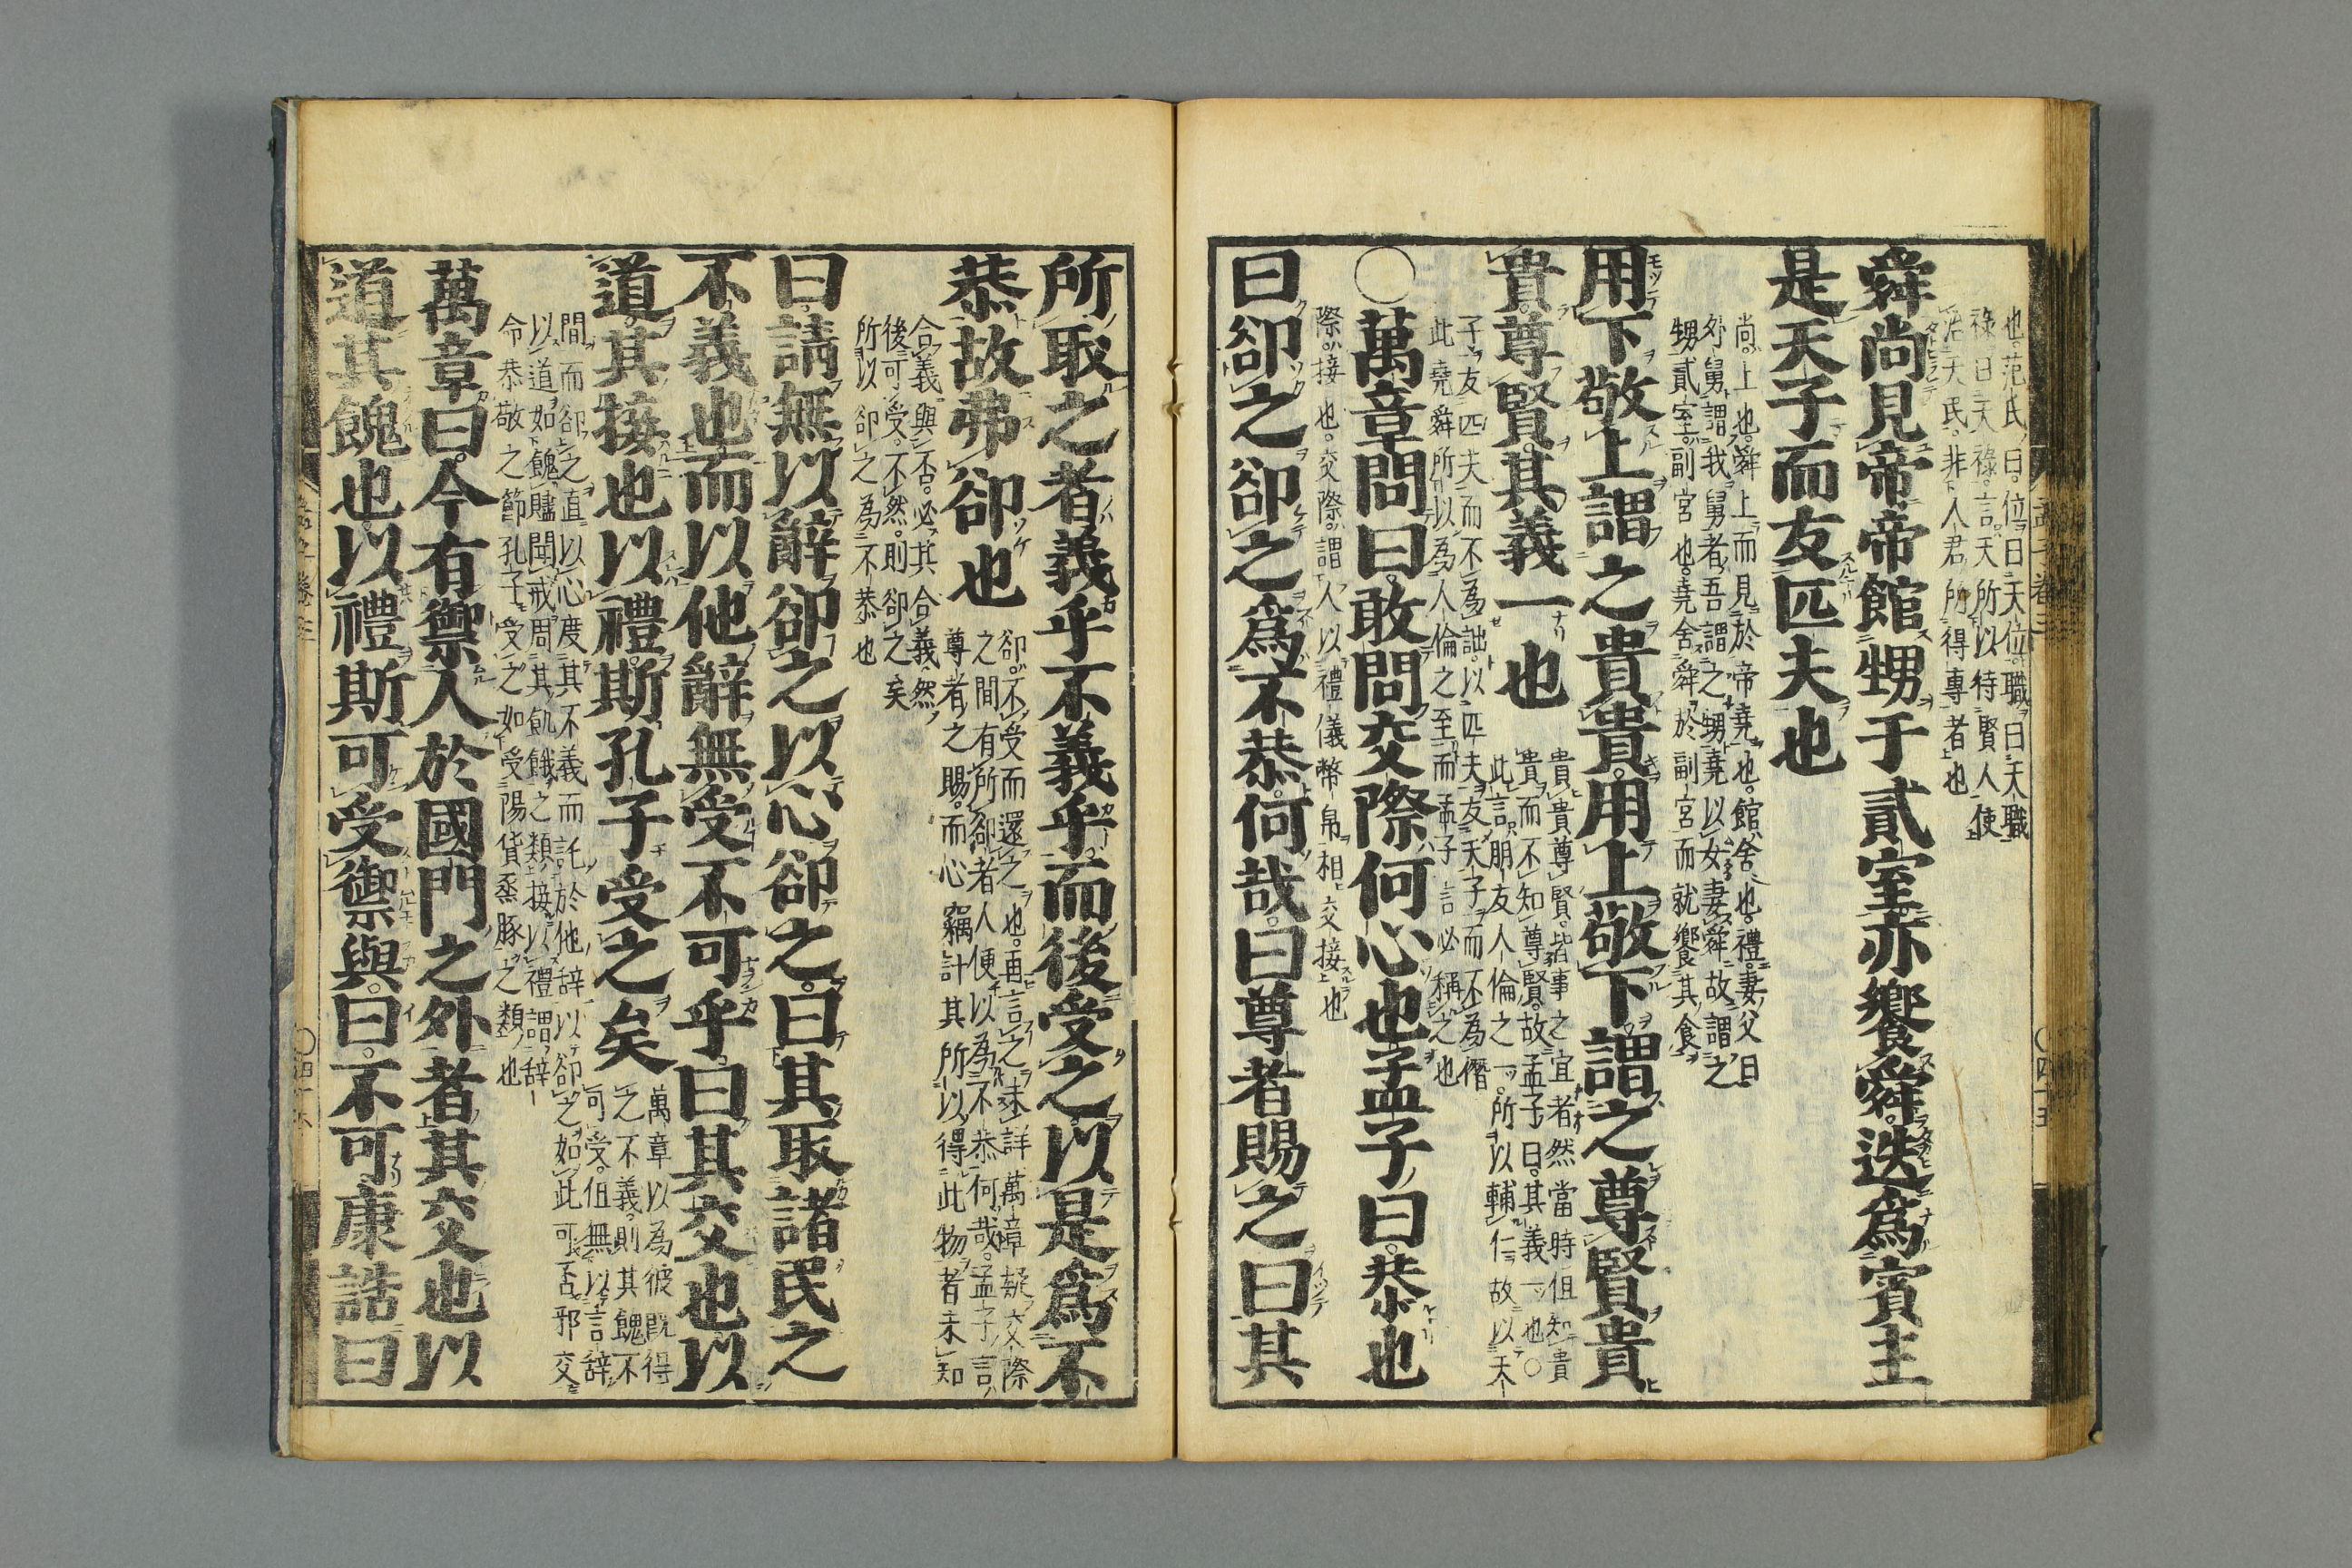 也。范氏曰。位曰天位。職曰天職
祿曰天祿。言天所以待賢人使
治天民。非人君所得專者也
舜尚見帝帝館甥于貳室亦饗舜。迭爲賓主
是天子而友匹夫也
尚上也。舜上而見於帝堯也。館舍也。禮。妻父曰
外舅。謂我舅者。吾謂之甥。堯以女妻舜。故謂之
甥。貳室。副宮也。堯舍舜於副宮而就饗其食
用下敬上謂之貴貴。用上敬下謂之尊賢貴
貴。尊賢。其義一也
貴貴尊賢。皆事之宜者。然當時但知貴
貴。而不知尊賢。故孟子曰。其義一也。○
此言朋友人倫之一。所以輔仁。故以天
子友匹夫。而不為詘。以匹夫友天子。而不為僭
此堯舜所以為人倫之至。而孟子言必稱之也
○萬章問曰。敢問交際何心也。孟子曰。恭也
際接也。交際。謂人以禮儀幣帛相交接也
曰卻之卻之爲不恭。何哉。曰尊者賜之。曰其
所取之者義乎不義乎。而後受之。以是爲不
恭。故弗卻也
卻。不受而還之也。再言之未詳。萬章疑交際
之間有所卻者人便以為不恭何哉。孟子言
尊者之賜。而心竊計其所以得此物者未知
合義與否。必其合義。然
後可受。不然則卻之矣
所以卻之為不恭也
曰。請無以辭卻之以心卻之。曰其取諸民之
不義也而以他辭無受不可乎。曰其交也以
道。其接也以禮。斯孔子受之矣
萬章以為彼既得
之不義。則其餽不
可受。但無以言辭
間而卻之。直以心度其不義而託於他辞以卻之。如此可否邪。交
以道。如餽贐聞戒周其飢餓之類。接以禮謂辞
令恭敬之節。孔子受之。如受陽貨烝豚之類也
萬章曰。今有禦人於國門之外者。其交也以
道。其餽也以禮斯可受禦與。曰。不可。康誥曰